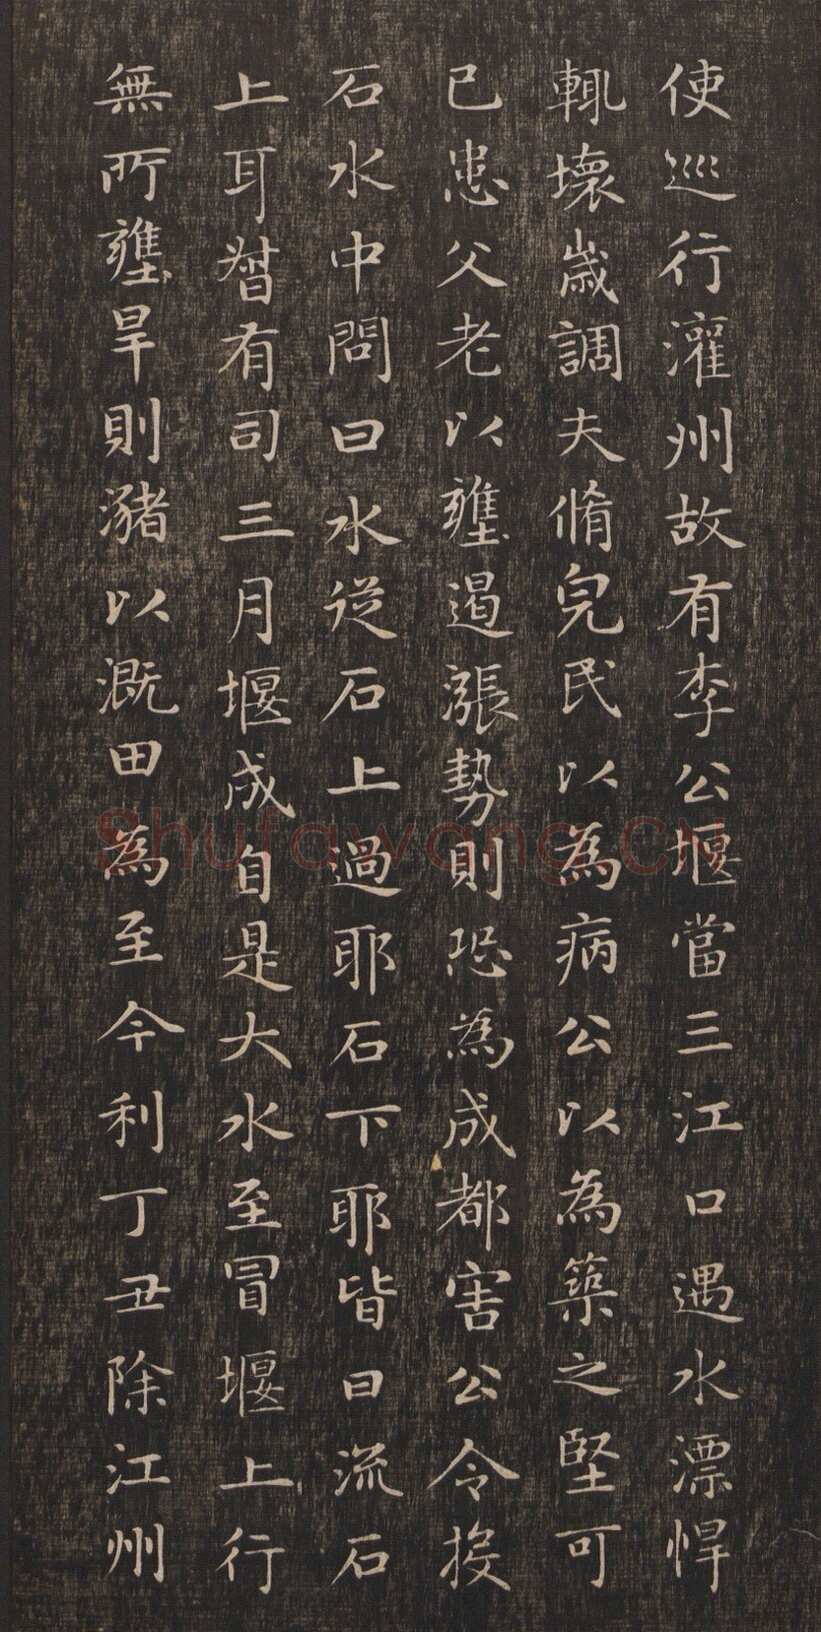 使巡行灌州故有李公堰當三江口遇水漂悍
輒壞歲調夫脩皃民以為病公以為築之堅可
已患父老以壅遏漲勢則恐為成都害公令投
石水中問曰水從石上過耶石下耶皆曰流石
上耳督有司三月堰成自是大水至冒堰上行
無所壅旱則瀦以溉田為至今利丁丑除江州
Shufawang.CN